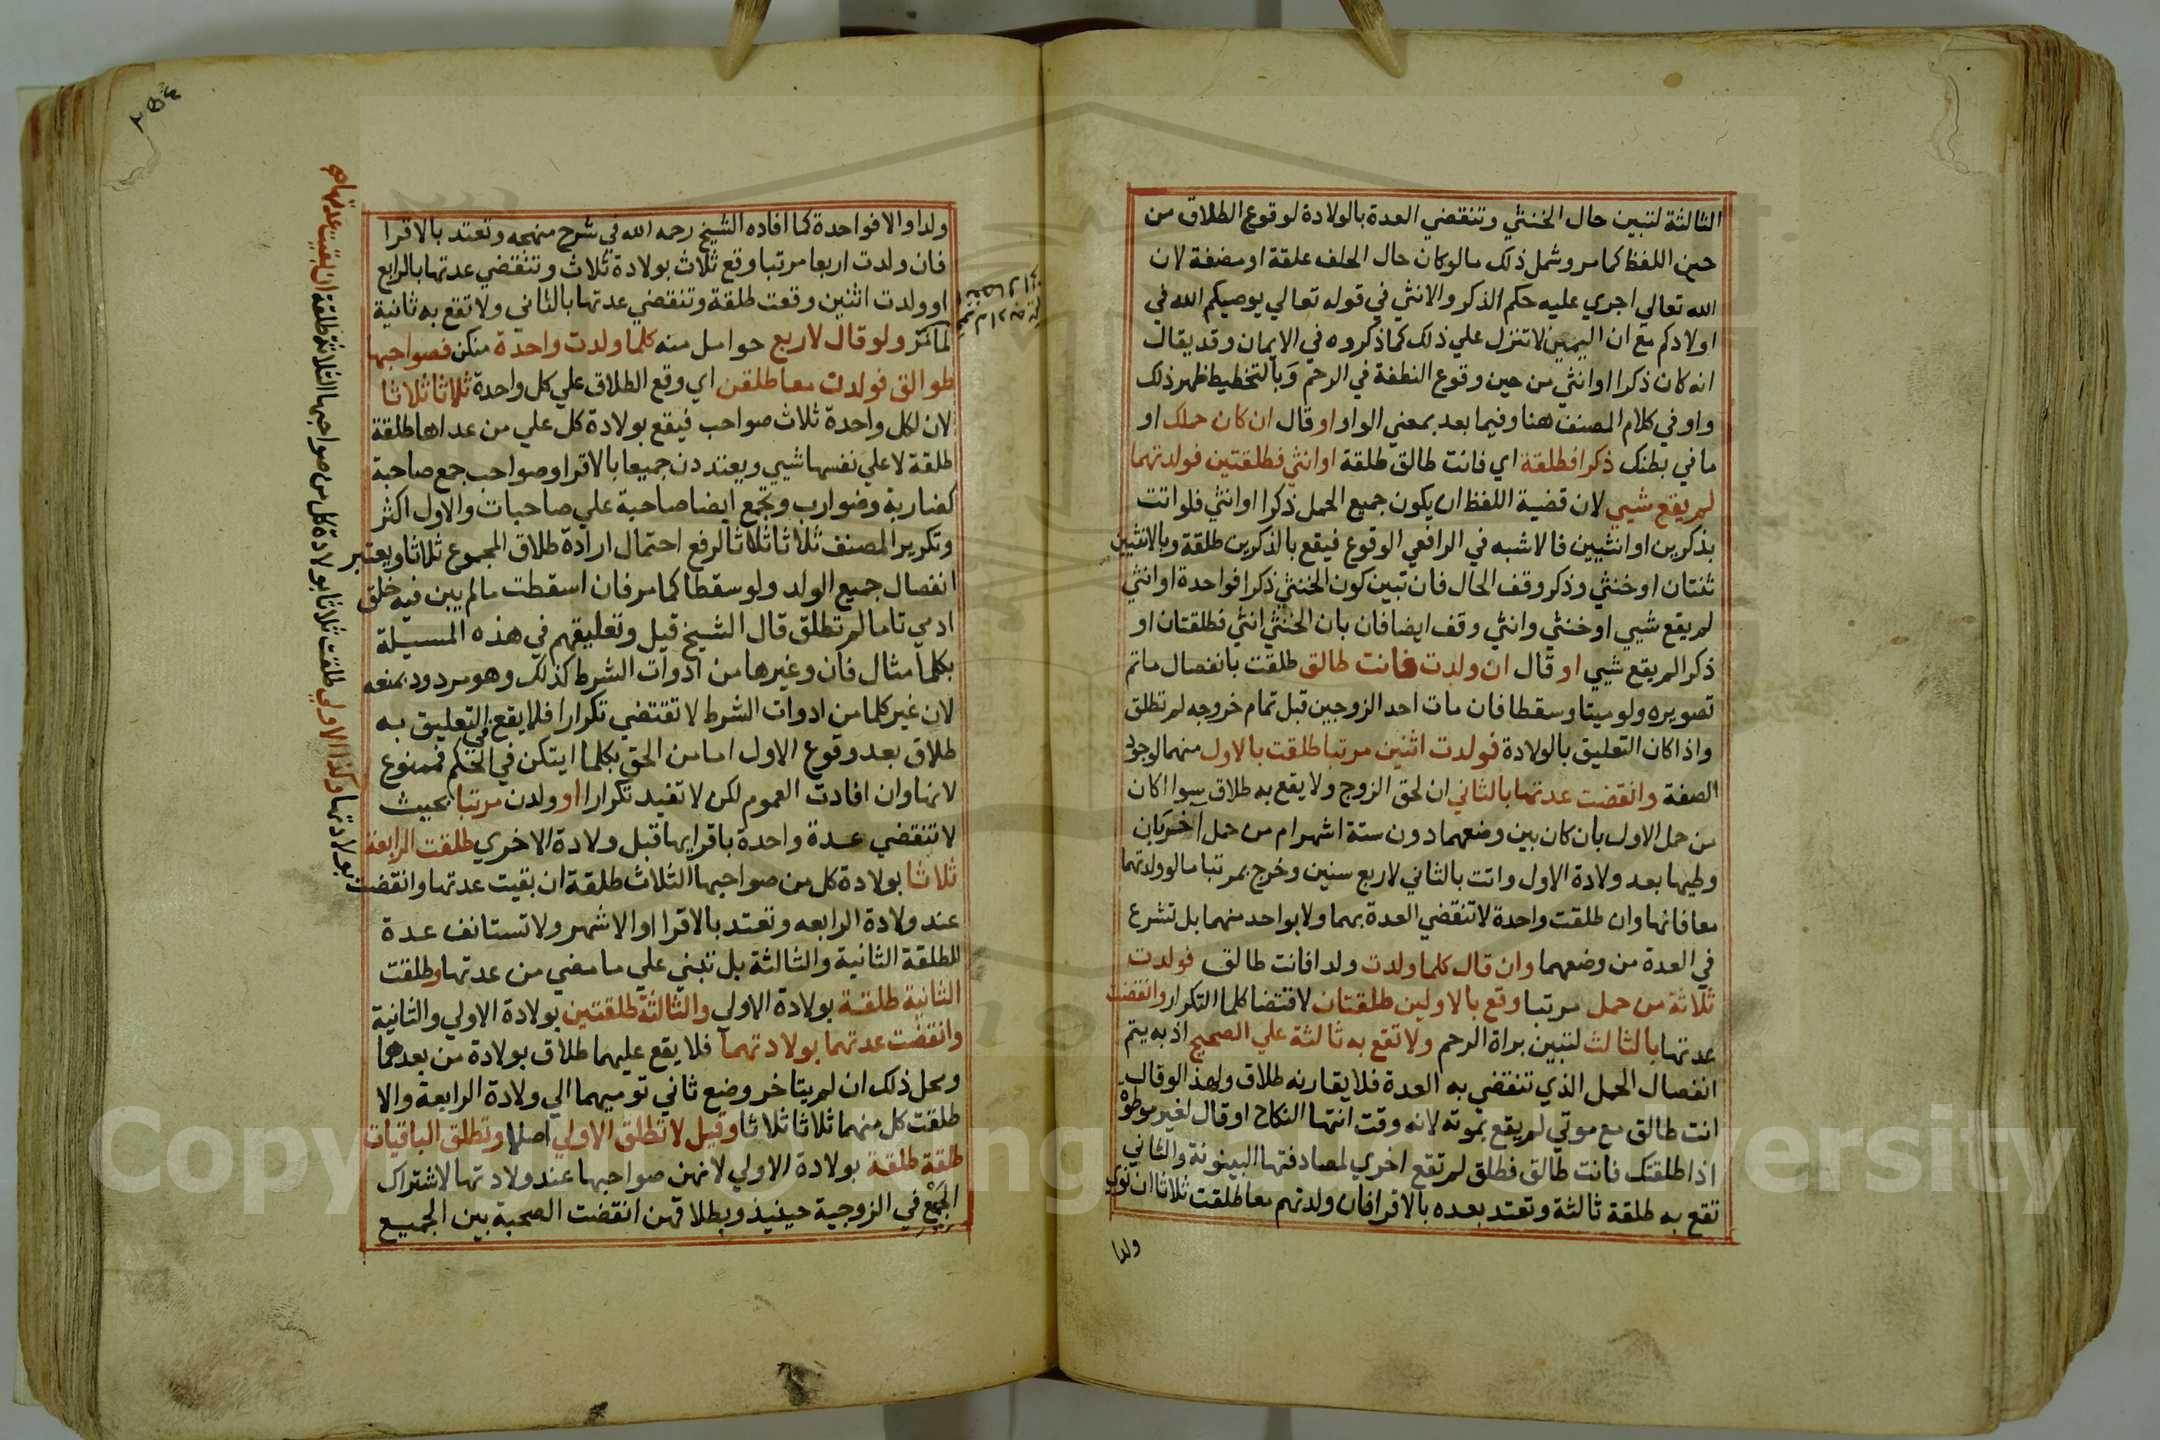 الثالثة لتبين حال الخنثي وتنقضي العدة بالولادة لوقوع الطلاق من
حين اللفظ كما مر وشمل ذلك مالوكان حال الحلف علقة او مضغة لان
الله تعالي اجري عليه حكم الذكر والانثي في قوله تعالي يوصيكم الله في
اولادكم مع ان اليمين لا تنزل علي ذلك كما ذكروه في الايمان وقد يقال
انه كان ذكرا او انثي من حين وقوع النطفة في الرحم وبالتخطيط ظهر ذلك
واو في كلام المصنف هنا وفيما بعد بمعني الواو او قال ان كان حملك او
ما في بطنك ذكرا فطلقة اي فانت طالق طلقة او انثي فطلقتين فولدتهما
لم يقع شيي لان قضية اللفظ ان يكون جميع الحمل ذكرا او انثي فلو اتت
بذكرين او انثيين فالاشبه في الرافعي الوقوع فيقع بالذكرين طلقة وبالانثيين
ثنتان او خنثي وذكر وقف الحال فان تبين كون الخنثي ذكرا فواحدة او انثي
لم يقع شيي او خنثي وانثي وقف ايضا فان بان الخنثي انثي فطلقتان او
ذكرا لم يقع شيي او قال ان ولدت فانت طالق طلقت بانفصال ما تم
تصويره ولو ميتا وسقطا فان مات احد الزوجين قبل تمام خروجه لم تطلق
واذا كان التعليق بالولادة فولدت اثنين مرتبا طلقت بالاول منهما لوجود
الصفة وانقضت عدتها بالثاني ان لحق الزوج ولا يقع به طلاق سوا اكان
من حمل الاول بان كان بين وضعهما دون ستة اشهر ام من حمل آخر بان
وطيها بعد ولادة الاول واتت بالثاني لاربع سنين وخرج بمرتبا ما لو ولدتهما
معا فانها وان طلقت واحدة لا تنقضي العدة بهما ولا بواحد منهما بل تشرع
في العدة من وضعهما وان قال كلما ولدت ولدا فانت طالق فولدت
ثلاثة من حمل مرتبا وقع بالاولين طلقتان لاقتضا كلما التكرار وانقضت
عدتها بالثالث لتبين براة الرحم ولا تقع به ثالثة علي الصحيح اذ به يتم
انفصال الحمل الذي تنقضي به العدة فلا يقارنه طلاق ولهذا لو قال
انت طالق مع موتي لم يقع بموته لانه وقت انتها النكاح او قال لغير موطوة
اذا طلقتك فانت طالق فطلق لم تقع اخري لمصادفتها البينونة والثاني
تقع به طلقة ثالثة وتعتد بعده بالاقرا فان ولدتهم معا طلقت ثلاثا ان نوي
ولدا
ولدا والا فواحدة كما افاده الشيخ رحمه الله في شرح منهجه وتعتد بالاقرا
فان ولدت اربعا مرتبا وقع ثلاث بولادة ثلاث وتنقضي عدتها بالرابع
او ولدت اثنين وقعت طلقة وتنقضي عدتها بالثاني ولا تقع به ثانية
لما مر ولو قال لاربع حوامل منه كلما ولدت واحدة منكن فصواحبها
طوالق فولدت معا طلقن اي وقع الطلاق علي كل واحدة ثلاثا ثلاثا
لان لكل واحدة ثلاث صواحب فيقع بولادة كل علي من عداها طلقة
طلقة لا علي نفسها شيي ويعتددن جميعا بالاقرا وصواحب جمع صاحبة
كضاربة وضوارب وتجمع ايضا صاحبة علي صاحبات والاول اكثر
وتكرير المصنف ثلاثا ثلاثا لرفع احتمال ارادة طلاق المجموع ثلاثا ويعتبر
انفصال جميع الولد ولو سقطا كما مر فان اسقطت مالم يبن فيه خلق
ادمي تاما لم تطلق قال الشيخ قيل وتعليقهم في هذه المسيلة
بكلما مثال فان وغيرها من ادوات الشرط كذلك وهو مردود بمنعه
لان غير كلما من ادوات الشرط لا تقتضي تكرارا فلا يقع في التعليق به
طلاق بعد وقوع الاول اما من الحق بكلما ايتكن في الحكم فممنوع
لانها وان افادت العموم لكن لا تفيد تكرارا او ولدن مرتبا بحيث
لا تنقضي عدة واحدة باقرايها قبل ولادة الاخري طلقت الرابعة
ثلاثا بولادة كل من صواحبها الثلاث طلقة ان بقيت عدتها وانقضت
عند ولادة الرابعه وتعتد بالاقرا او الاشهر ولا تستانف عدة
للطلقة الثانية والثالثة بل تبني علي ما مضي من عدتها وطلقت
الثانية طلقة بولادة الاولي والثالثة طلقتين بولادة الاولي والثانية
وانقضت عدتهما بولادتهما فلا يقع عليهما طلاق بولادة من بعدهما
ومحل ذلك ان لم يتاخر وضع ثاني توميهما الي ولادة الرابعة والا
طلقت كل منهما ثلاثا ثلاثا وقيل لا تطلق الاولي اصلا وتطلق الباقيات
طلقة طلقة بولادة الاولي لانهن صواحبها عند ولادتها لاشتراك
الجميع في الزوجية حينيذ وبطلاقهن انقضت الصحبة بين الجميع
بولادتها وكذا الاولي طلقت ثلاثا بولادة كل من صواحبها الثلاث طلقة ان بقيت عدتها